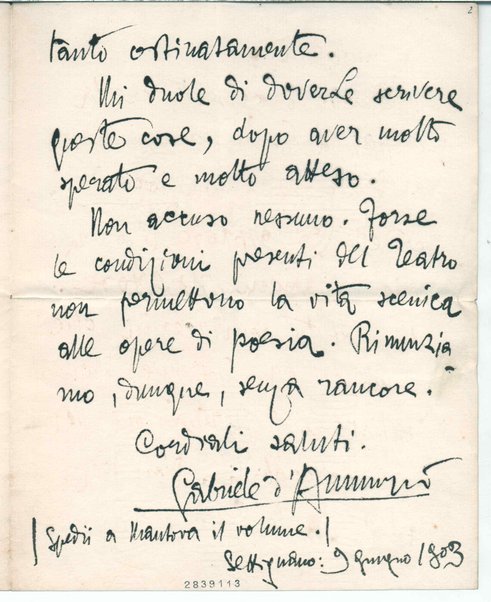 2
tanto ostinatamente.
Mi duole di doverLe scrivere
queste cose, dopo aver molto
sperato e molto atteso.
Non accuso nessuno. Forse
le condizioni presenti del Teatro
non permettono la vita scenica
alle opere di poesia. Rinunzia
mo, dunque, senza rancore.
Cordiali saluti.
Gabriele d'Annunzio
| Spedii a Mantova il volume. |
Settignano: 9 giugno 1903
2839113